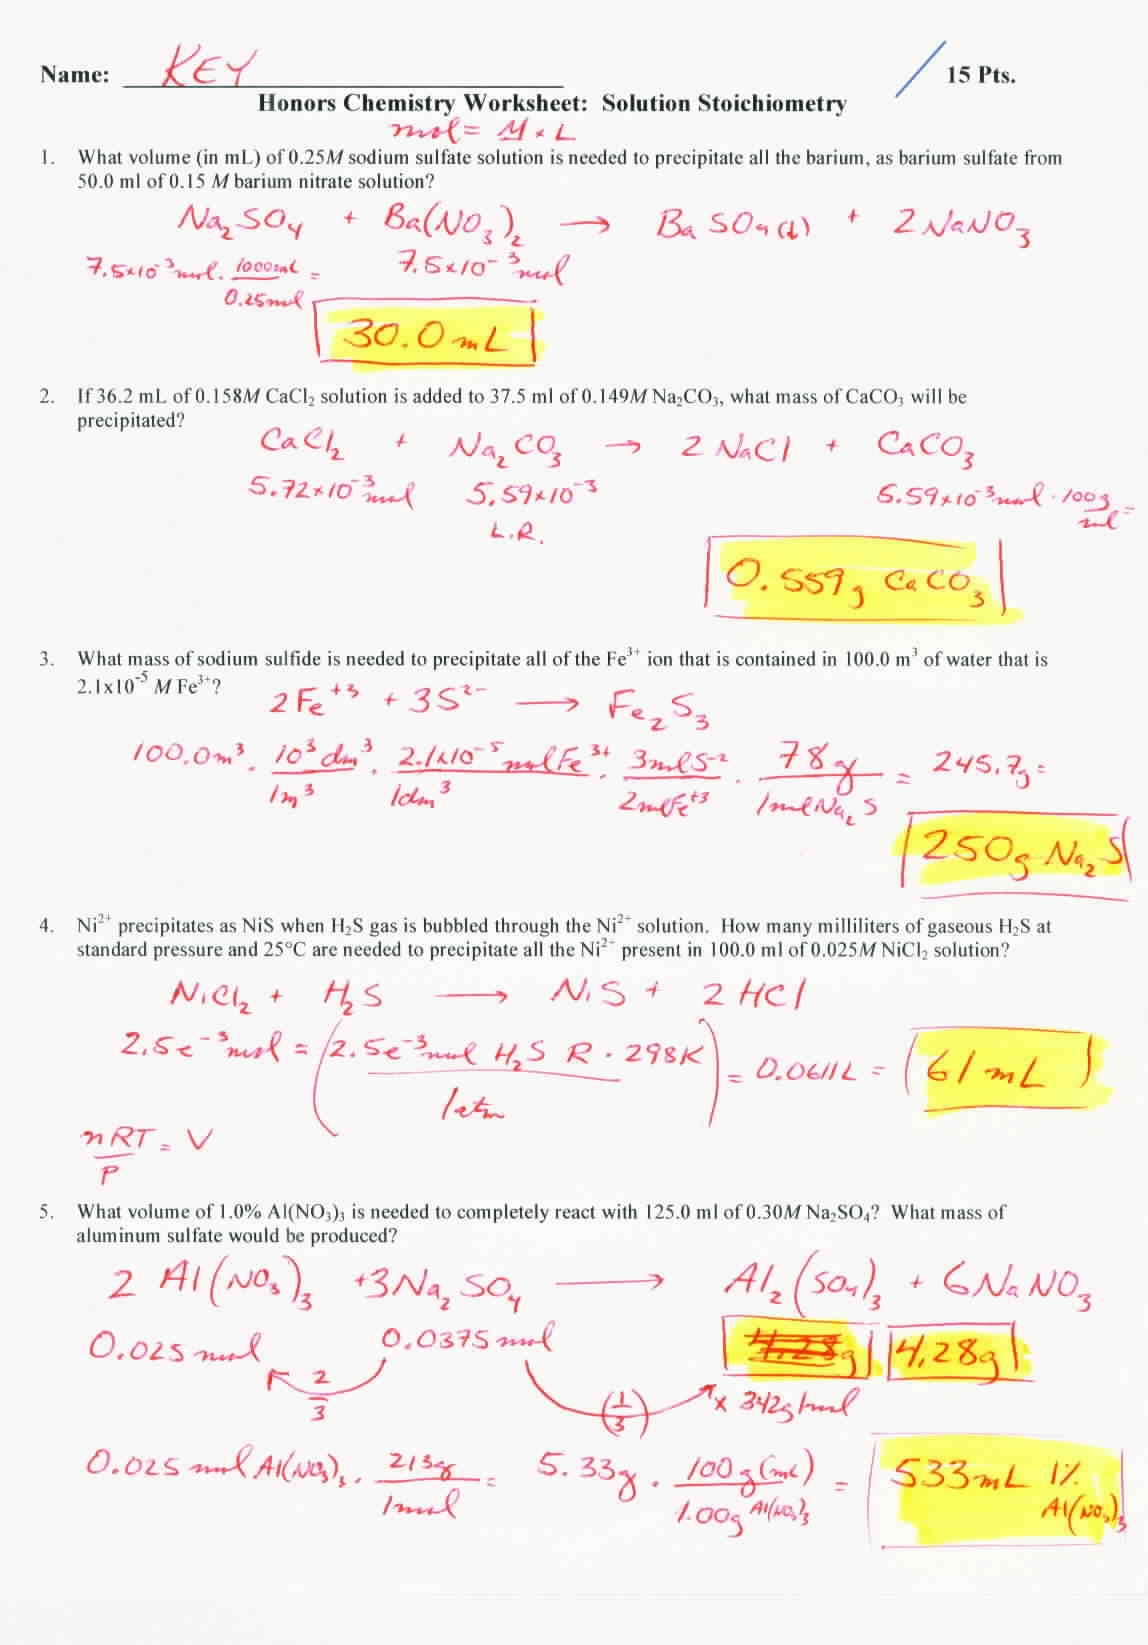 Name: KEY 15 Pts.
Honors Chemistry Worksheet: Solution Stoichiometry
mol = M × L
1. What volume (in mL) of 0.25M sodium sulfate solution is needed to precipitate all the barium, as barium sulfate from
50.0 ml of 0.15 M barium nitrate solution?
Na₂SO₄ + Ba(NO₃)₂ → BaSO₄(↓) + 2NaNO₃
7.5×10⁻³ mol · 1000mL / 0.25mol = 7.5×10⁻³ mol
30.0 mL
2. If 36.2 mL of 0.158M CaCl₂ solution is added to 37.5 ml of 0.149M Na₂CO₃, what mass of CaCO₃ will be
precipitated?
CaCl₂ + Na₂CO₃ → 2 NaCl + CaCO₃
5.72×10⁻³ mol 5.59×10⁻³ 5.59×10⁻³ mol · 100g / mol =
L.R.
0.559g CaCO₃
3. What mass of sodium sulfide is needed to precipitate all of the Fe³⁺ ion that is contained in 100.0 m³ of water that is
2.1x10⁻⁵ M Fe³⁺?
2Fe⁺³ + 3S²⁻ → Fe₂S₃
100.0m³ · 10³dm³ / 1m³ · 2.1×10⁻⁵ mol Fe³⁺ / 1dm³ · 3mol S⁻² / 2mol Fe⁺³ · 78g / 1mol Na₂S = 245.7g =
250g Na₂S
4. Ni²⁺ precipitates as NiS when H₂S gas is bubbled through the Ni²⁺ solution. How many milliliters of gaseous H₂S at
standard pressure and 25°C are needed to precipitate all the Ni²⁺ present in 100.0 ml of 0.025M NiCl₂ solution?
NiCl₂ + H₂S → NiS + 2 HCl
2.5e⁻³mol = (2.5e⁻³mol H₂S R · 298K / 1atm) = 0.0611L = 61 mL
nRT / P = V
5. What volume of 1.0% Al(NO₃)₃ is needed to completely react with 125.0 ml of 0.30M Na₂SO₄? What mass of
aluminum sulfate would be produced?
2 Al(NO₃)₃ + 3Na₂SO₄ → Al₂(SO₄)₃ + 6NaNO₃
0.025 mol 0.0375 mol 4.28g 4.28g
2/3 (1/3) × 342g/mol
0.025 mol Al(NO₃)₃ · 213g / 1mol = 5.33g · 100g(mL) / 1.00g Al(NO₃)₃ = 533mL 1% Al(NO₃)₃